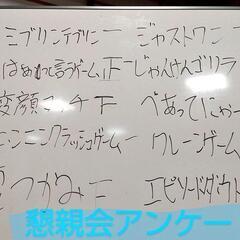 ミブリンテブリン 一
ジャストワン 一
はぁって言うゲーム 正一
じゃんけんゴリラ
変顔マッチ 下
ペあってにゃー
ニシニニクラッシュゲーム 一
クレーンゲーム
つかみ 二
エピソードダウト
懇親会アンケー